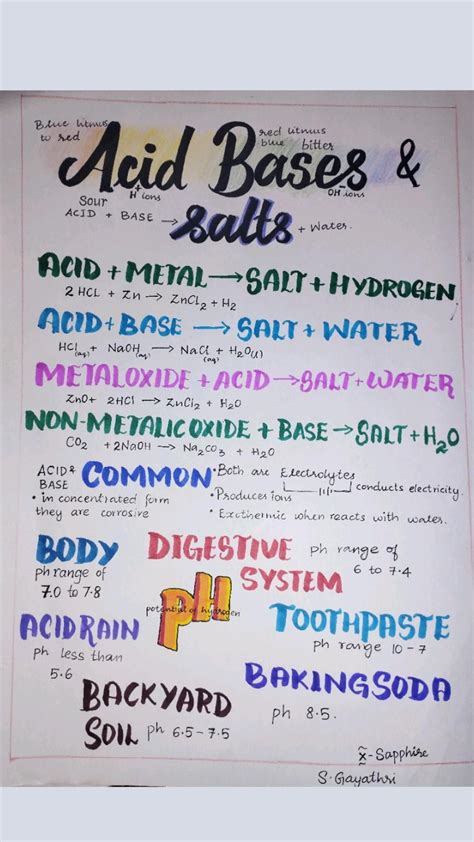 Blue litmus
to red
red litmus
blue bitter
Acid Bases &
H⁺ ions
OH⁻ ions
Sour
ACID + BASE → salts + Water.
ACID + METAL → SALT + HYDROGEN
2 HCL + Zn → ZnCl₂ + H₂
ACID + BASE → SALT + WATER
HCl(aq) + NaOH(aq) → NaCl(aq) + H₂O(l)
METALOXIDE + ACID → SALT + WATER
ZnO + 2HCl → ZnCl₂ + H₂O
NON-METALIC OXIDE + BASE → SALT + H₂O
CO₂ + 2NaOH → Na₂CO₃ + H₂O
ACID &
BASE COMMON
• in concentrated form
they are corrosive
• Both are Electrolytes
conducts electricity.
• Produces ions
• Exothermic when reacts with water.
BODY
ph range of
7.0 to 7.8
DIGESTIVE
SYSTEM
ph range of
6 to 7.4
pH
potential of hydrogen
ACID RAIN
ph less than
5.6
TOOTHPASTE
ph range 10 - 7
BAKING SODA
ph 8.5.
BACKYARD
SOIL ph 6.5 - 7.5
x̰ - Sapphire
S. Gayathri